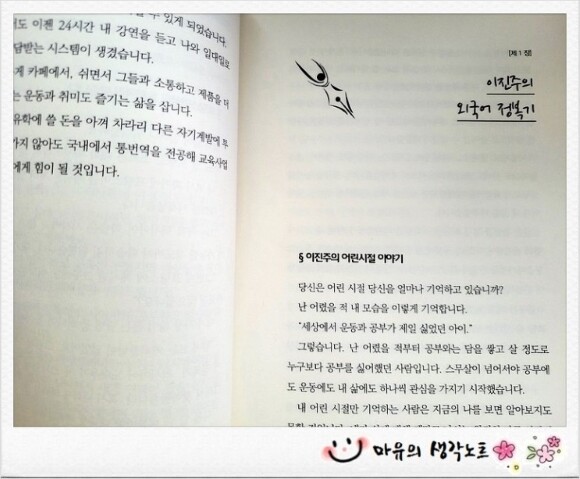 수 있게 되었습니다.
도 이젠 24시간 내 강연을 듣고 나와 일대일로
담받는 시스템이 생겼습니다.
게 카페에서, 쉬면서 그들과 소통하고 제품을 더
는 운동과 취미도 즐기는 삶을 삽니다.
유학에 쓸 돈을 아껴 차라리 다른 자기계발에 투
가지 않아도 국내에서 통번역을 전공해 교육사업
에게 힘이 될 것입니다.
[제 1 장]
이진주의
외국어 정복기
§ 이진주의 어린시절 이야기
당신은 어린 시절 당신을 얼마나 기억하고 있습니까?
난 어렸을 적 내 모습을 이렇게 기억합니다.
“세상에서 운동과 공부가 제일 싫었던 아이.”
그렇습니다. 난 어렸을 적부터 공부와는 담을 쌓고 살 정도로
누구보다 공부를 싫어했던 사람입니다. 스무살이 넘어서야 공부에
도 운동에도 내 삶에도 하나씩 관심을 가지기 시작했습니다.
내 어린 시절만 기억하는 사람은 지금의 나를 보면 알아보지도
마유의 생각노트